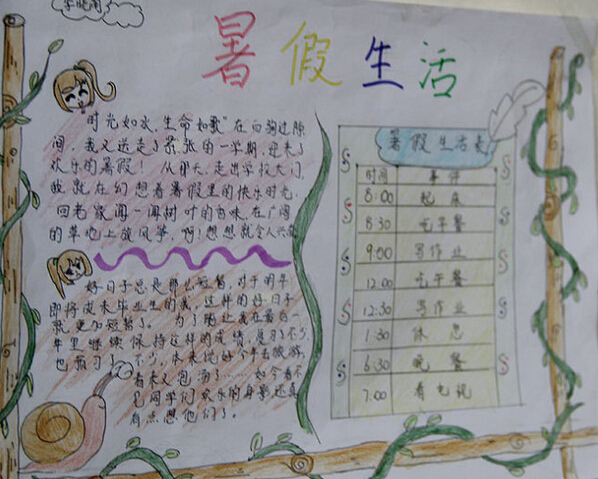 暑假生活
时光如水,生命如歌"在白驹过隙
间,我又送走了紧张的一学期,迎来了
欢乐的暑假! 从那天,走出学校大门,
我就在幻想着暑假里的快乐时光:
回老家闻一闻树叶的香味,在广阔
的草地上放风筝,啊!想想就令人兴奋
好日子总是那么短暂,对于明年
即将成未毕业生的我,这样的好日子
就更加短暂了。 为了能让我在最后一
年里继续保持这样的成绩,复习不少,
也预习了不少,本来说好今年去旅游,
看来又泡汤了……如今看不
见同学们欢乐的身影还真
有点想他们了。
暑假生活表
时间 事件
8:00 起床
8:30 吃早餐
9:00 写作业
12:00 吃午餐
12:30 写作业
1:30 休息
6:30 晚餐
7:00 看电视